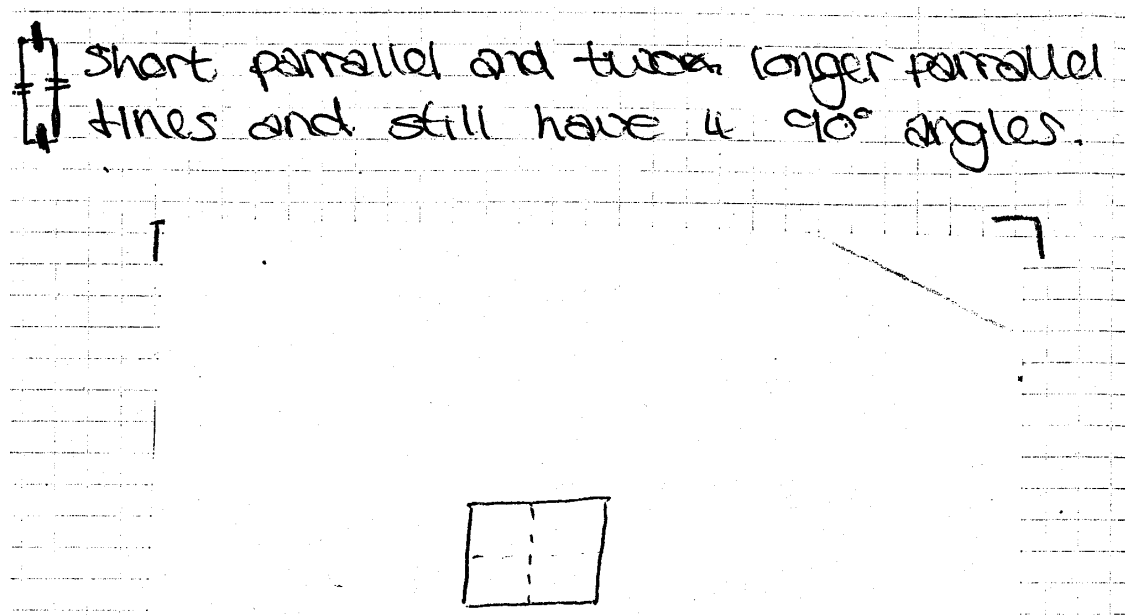 short parrallel and two longer parrallel
lines and still have 4 90° angles.